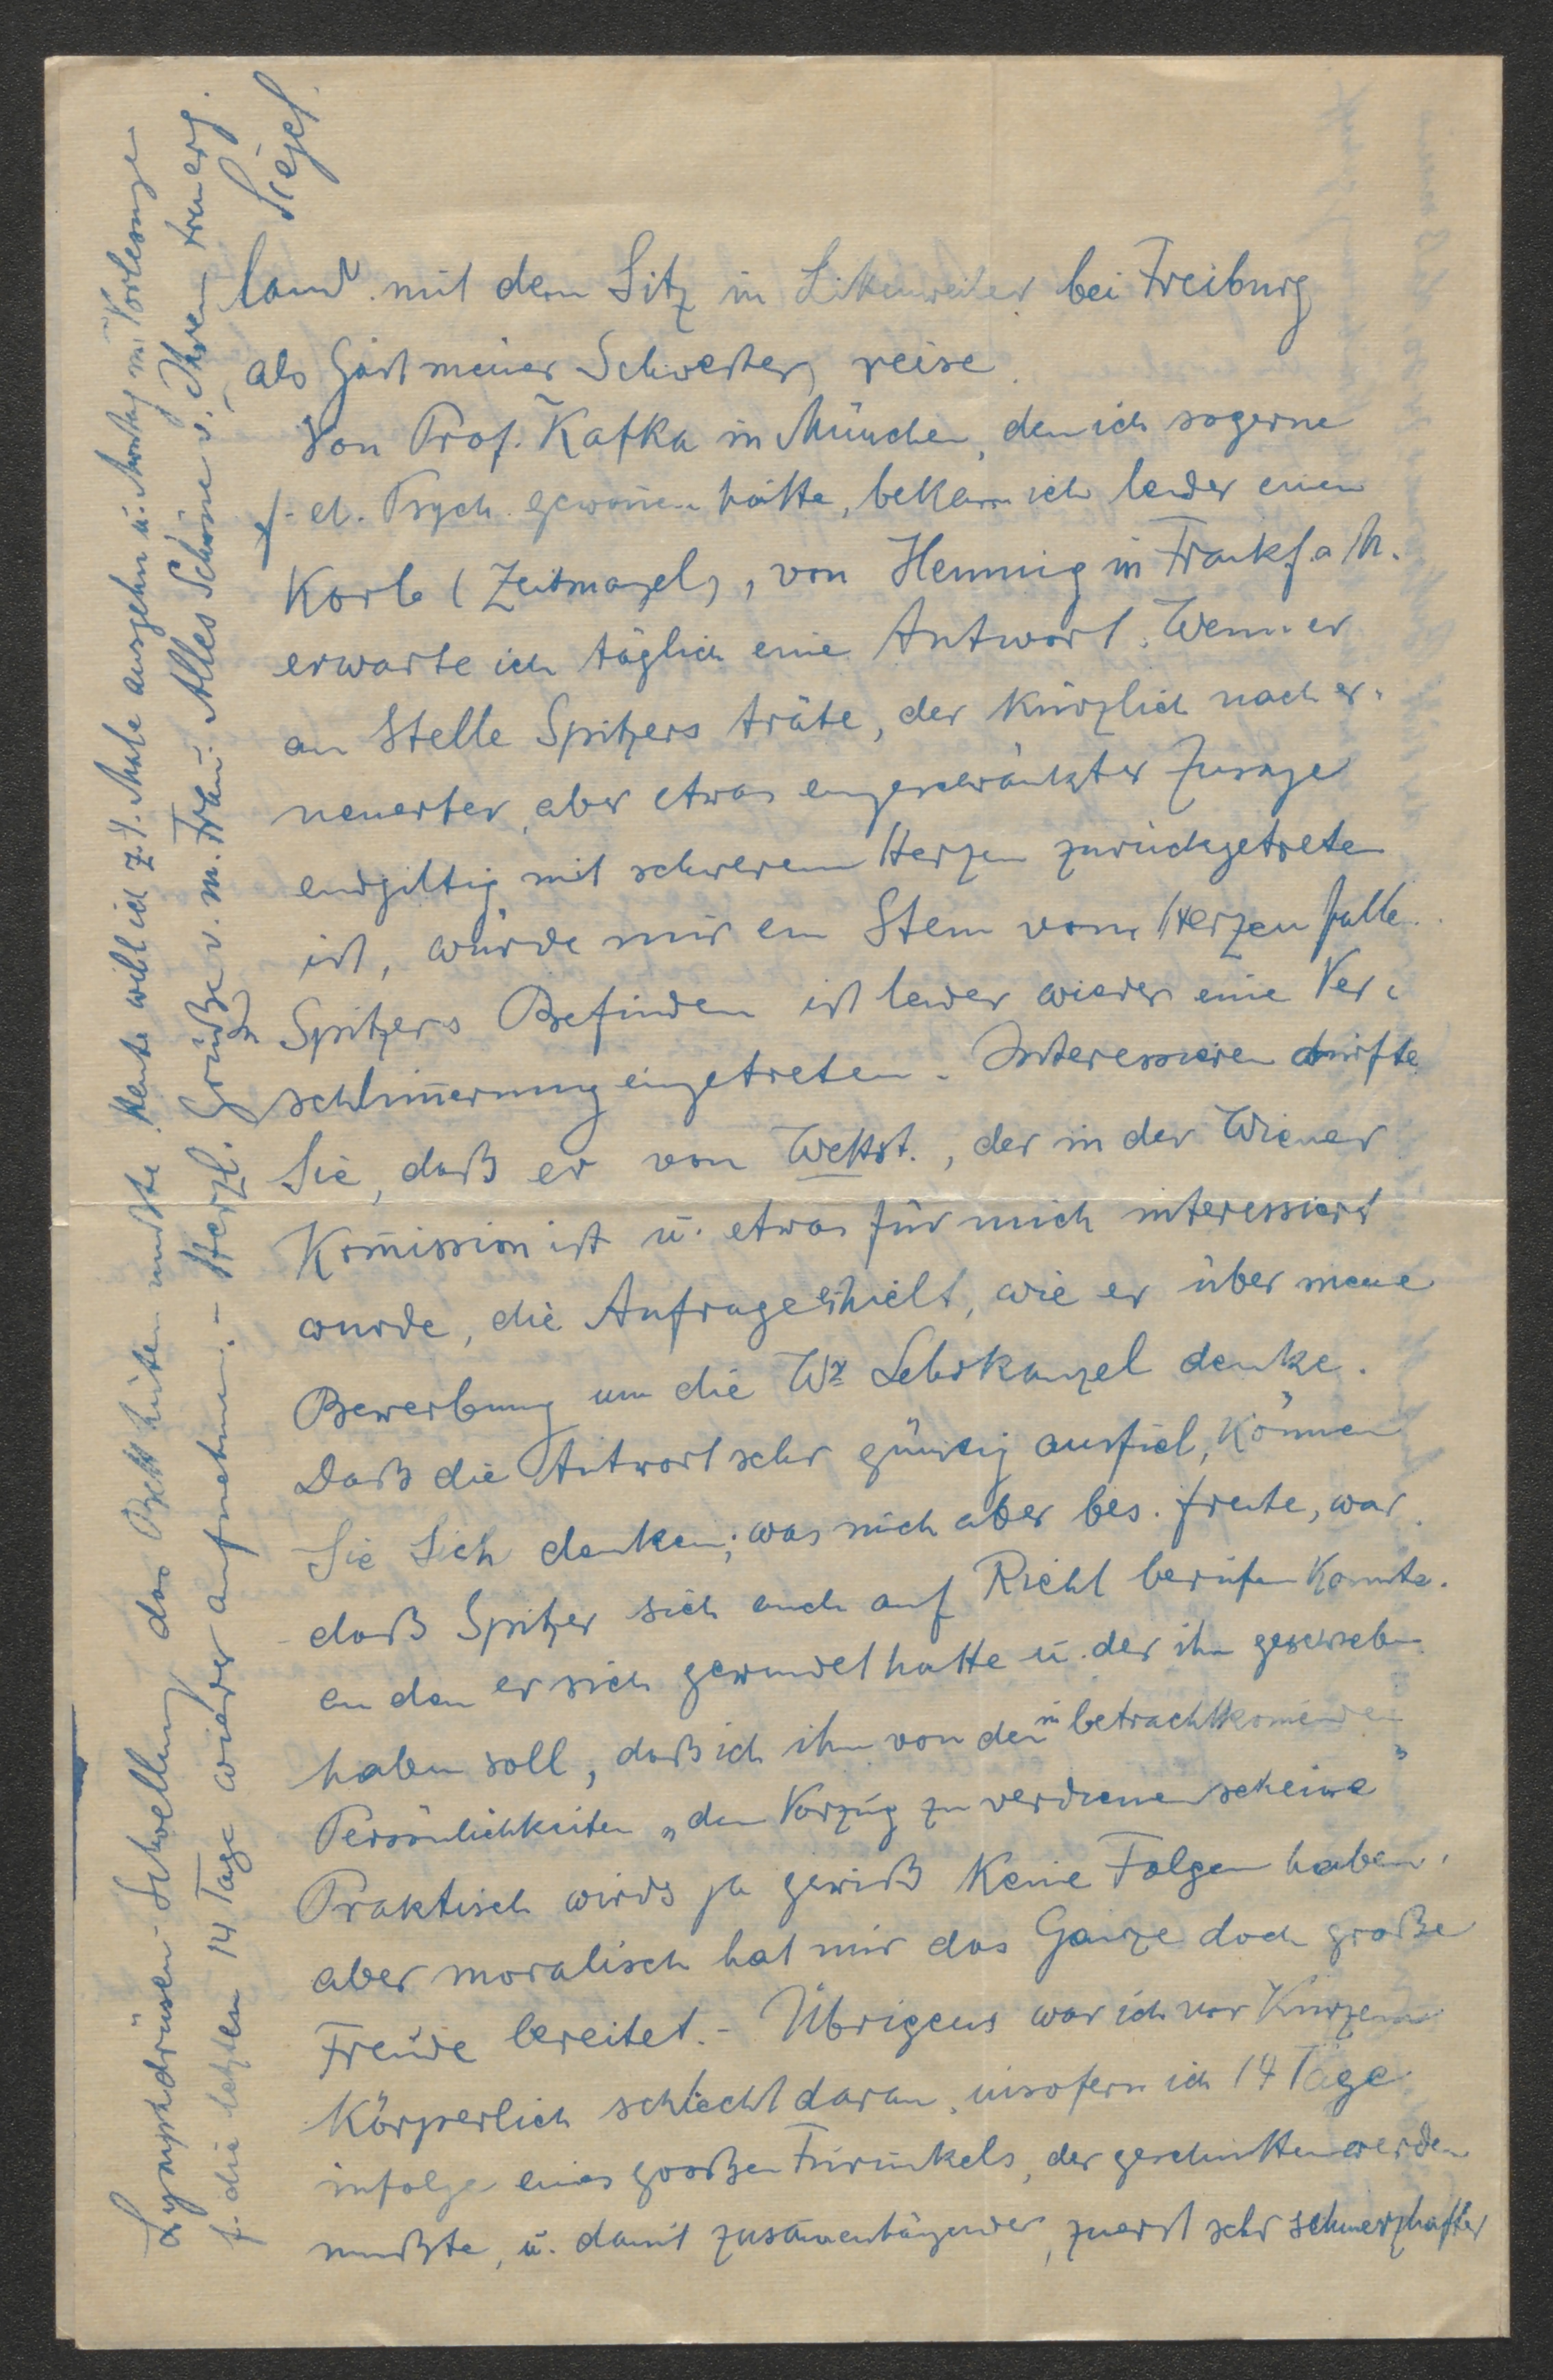 land mit dem Sitz in Littenweiler bei Freiburg
als Gast meiner Schwester) reise.
Von Prof. Kafka in München, den ich sogerne
f. d. Psych. gewon̄en hätte, bekam ich leider einen
Korb (Zeitmangel), von Henning in Frankf. a M.
erwarte ich täglich eine Antwort. Wenn er
an Stelle Spitzers träte, der kürzlich nach er-
neuerter, aber etwas eingeschränkter Zusage
endgiltig mit schwerem Herzen zurückgetreten
ist, würde mir ein Stein vom Herzen fallen.
Spitzers Befinden ist leider wieder eine Ver-
schlim̄erung eingetreten. Interessieren dürfte
Sie, daß er von Wettst., der in der Wiener
Kom̄ission ist u. etwas für mich interessiert
wurde, die Anfrage erhielt, wie er über meine
Bewerbung um die Wr Lehrkanzel denke.
Daß die Antwort sehr günstig ausfiel, können
Sie Sich denken; was mich aber bes. freute, war
daß Spitzer sich auch auf Riehl berufen konnte.
an den er sich gewendet hatte u. der ihm geschrieben
haben soll, daß ich ihm von den in betrachtkom̄enden
Persönlichkeiten „den Vorzug zu verdienen scheine"
Praktisch wirds ja gewiß keine Folgen haben,
aber moralisch hat mir das Ganze doch große
Freude bereitet. - Übrigens war ich vor Kurzem
körperlich schlecht daran, insofern ich 14 Tage
infolge eines großen Furunkels, der geschnitten werden
mußte, u. damit zusam̄enhängender, zuerst sehr schmerzhafter
Lymphdrüsen-Schwellung das Bett hüten mußte. Heute will ich z. 1. Male ausgehn u. Montag m. Vorlesungen
f. die letzten 14 Tage wieder aufnehmen. - Herzl. Grüße v. m. Frau. Alles Schöne v. Ihrem treuerg.
Siegel.